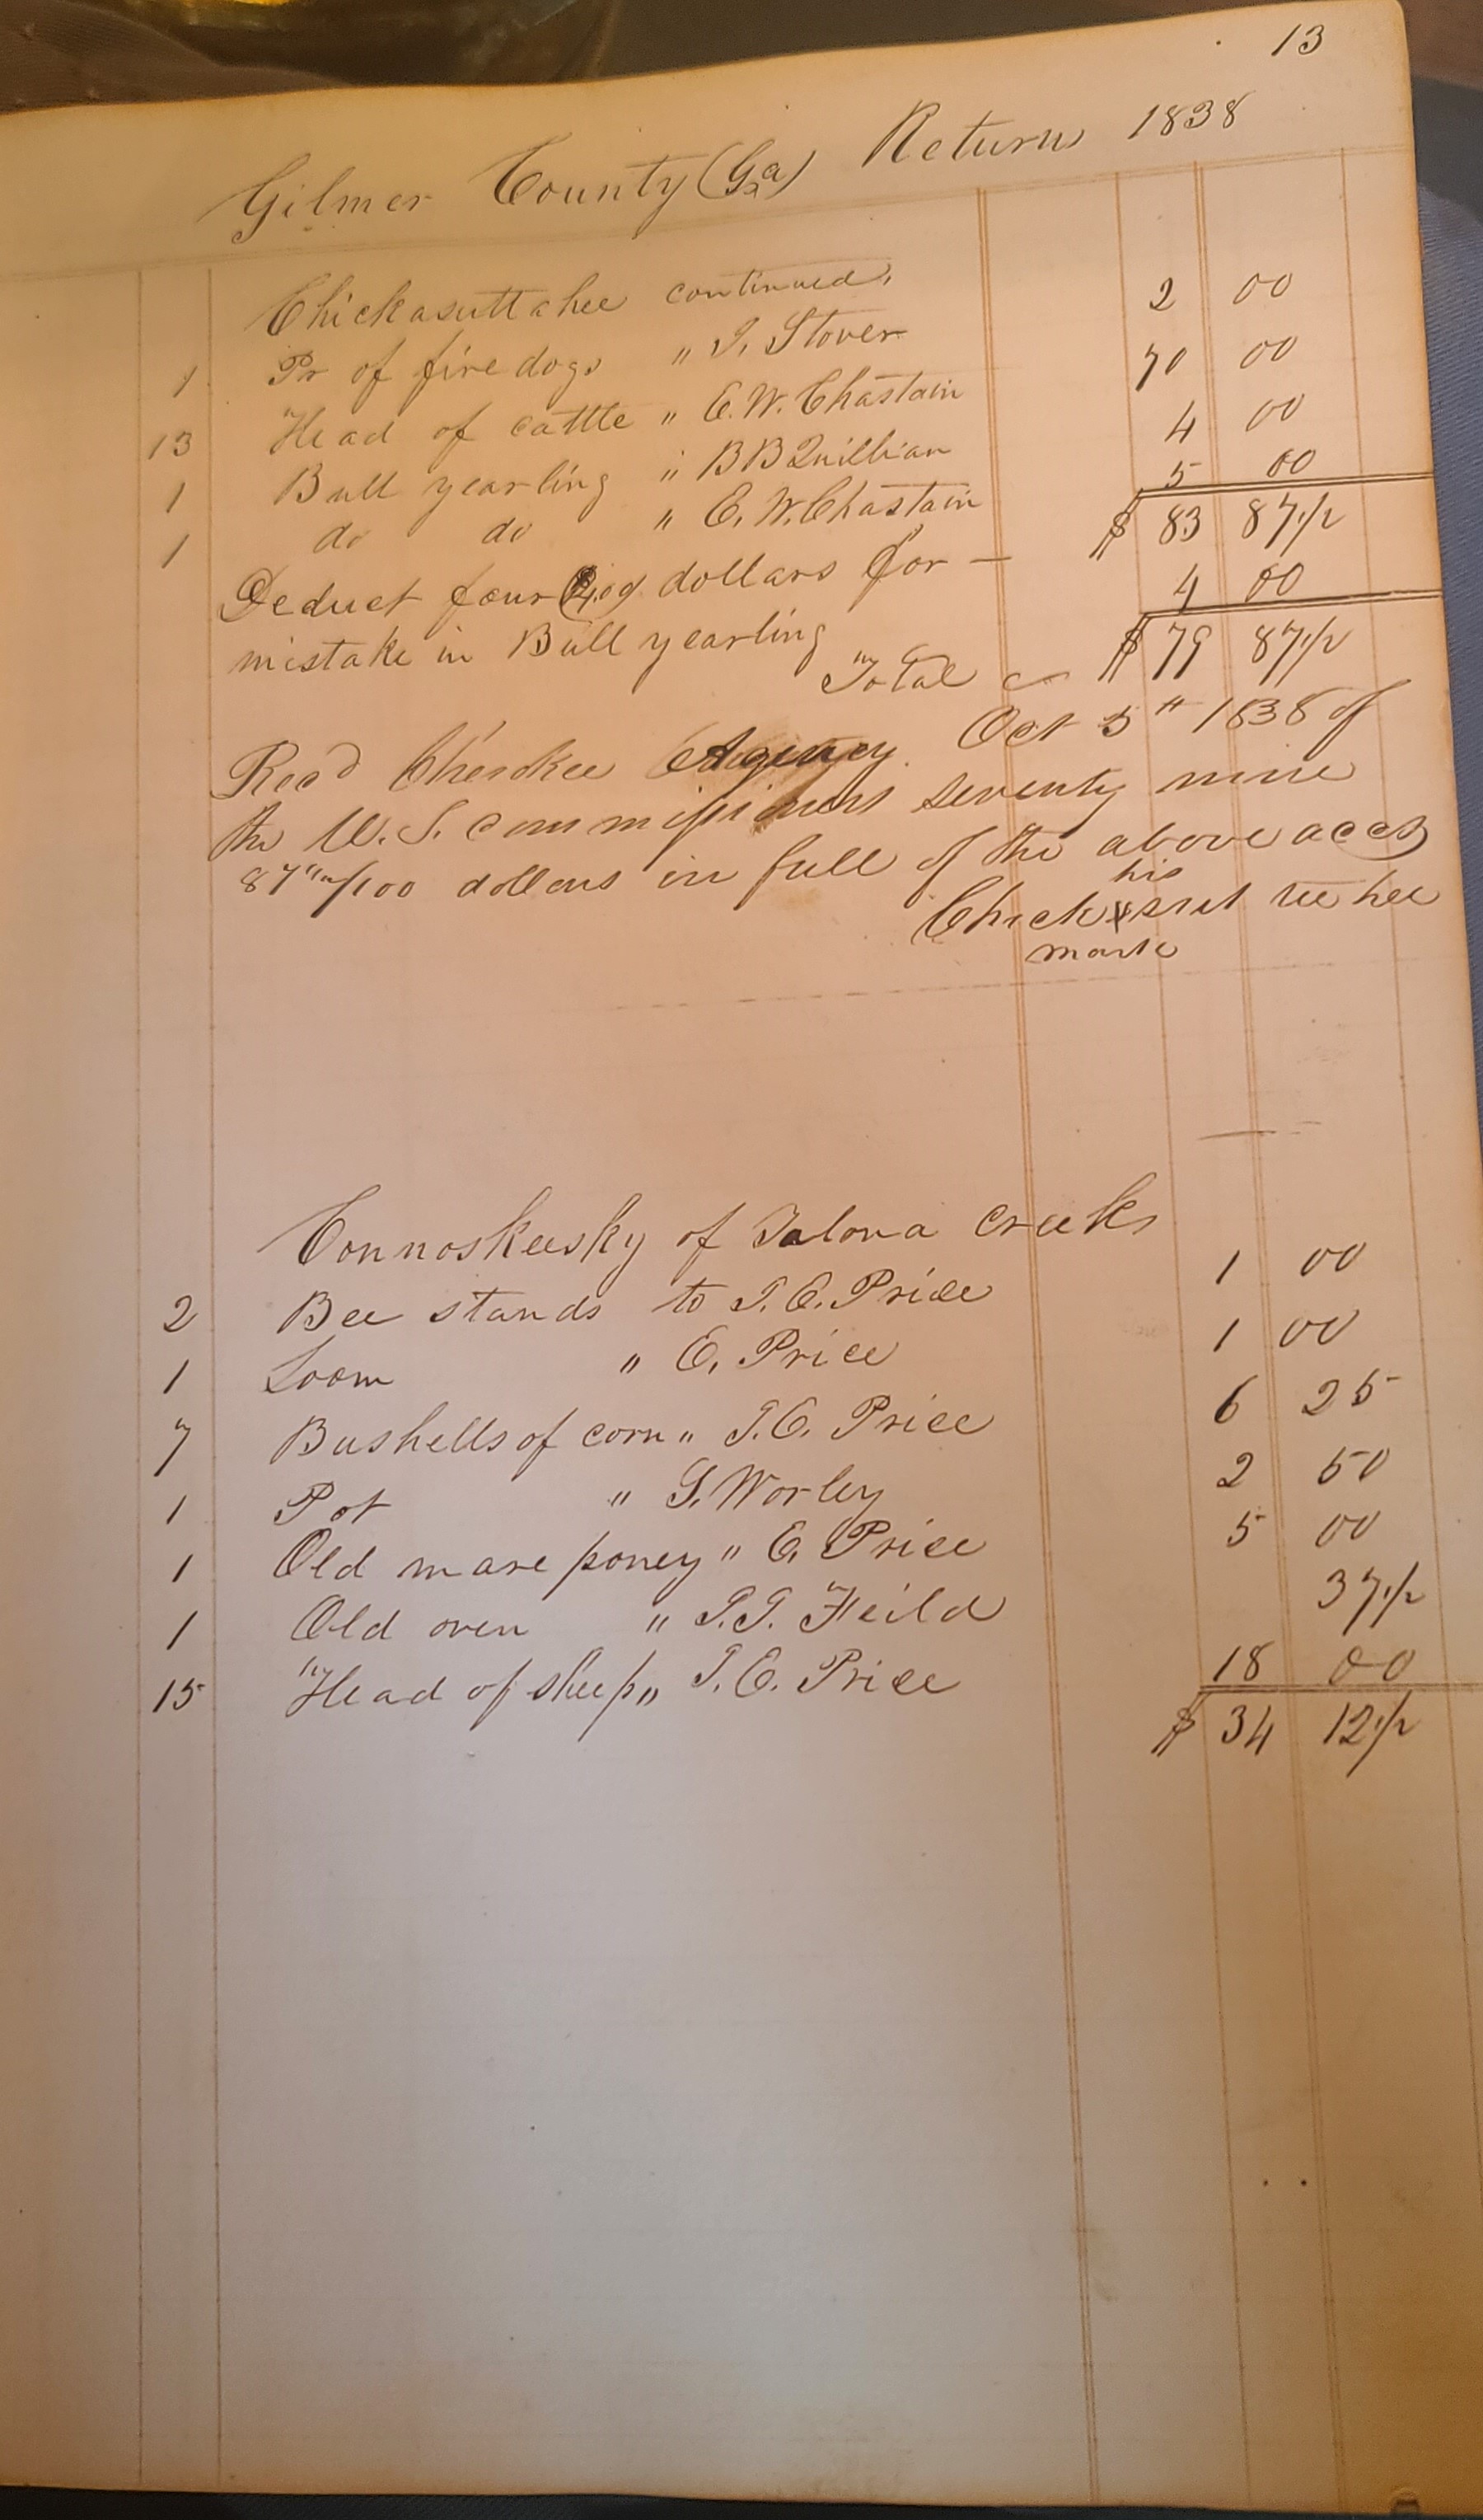 13
Gilmer County (Ga) Return 1838
Chickasuttahee continued,
1 Pr of fire dogs " J. Stover 2 00
13 Head of cattle " E. W. Chastain 70 00
1 Bull yearling " B B Quillian 4 00
1 do do " E. W. Chastain 5 00
$ 83 87 1/2
Deduct four dollars for — 4 00
mistake in Bull yearling
Total $ 79 87 1/2
Recd Cherokee Agency Oct 5th 1838 of
the U. S. commissioners seventy nine
87 1/2/100 dollars in full of the above acct
his
Chick x sut tee hee
mark
Connoskeesky of Talona creek
2 Bee stands to J. E. Price 1 00
1 Loom " E. Price 1 00
7 Bushells of corn " J. E. Price 6 25
1 Pot " S. Worley 2 50
1 Old mare poney " E. Price 5 00
1 Old oven " J. J. Feild 37 1/2
15 Head of sheep " J. E. Price 18 00
$ 34 12 1/2